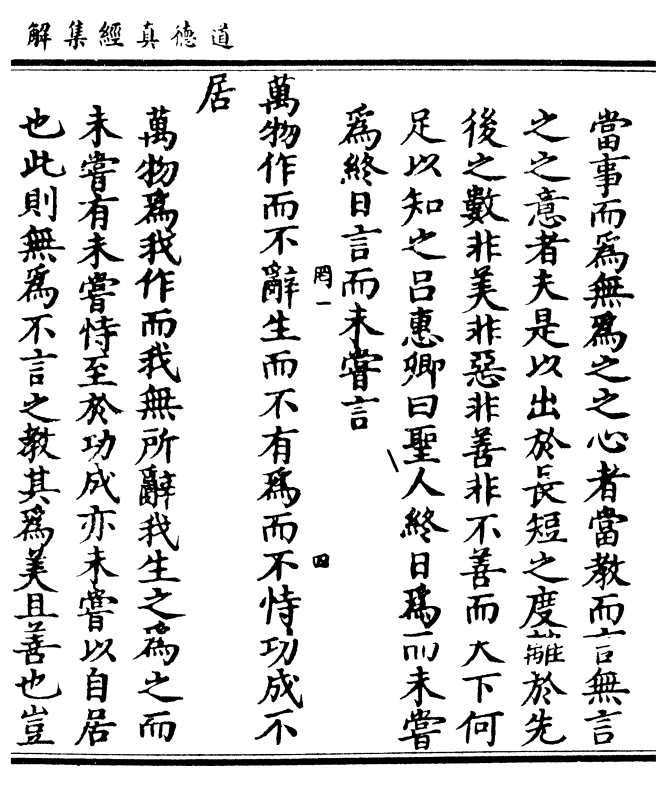 道德真經集解
當事而爲無爲之之心者當教而言無言
之之意者夫是以出於長短之度離於先
後之數非美非惡非善非不善而天下何
足以知之呂惠卿曰聖人終日爲而未嘗
爲終日言而未嘗言
罔一
萬物作而不辭生而不有爲而不恃功成不
四
居
萬物爲我作而我無所辭我生之爲之而
未嘗有未嘗恃至於功成亦未嘗以自居
也此則無爲不言之教其爲美且善也豈